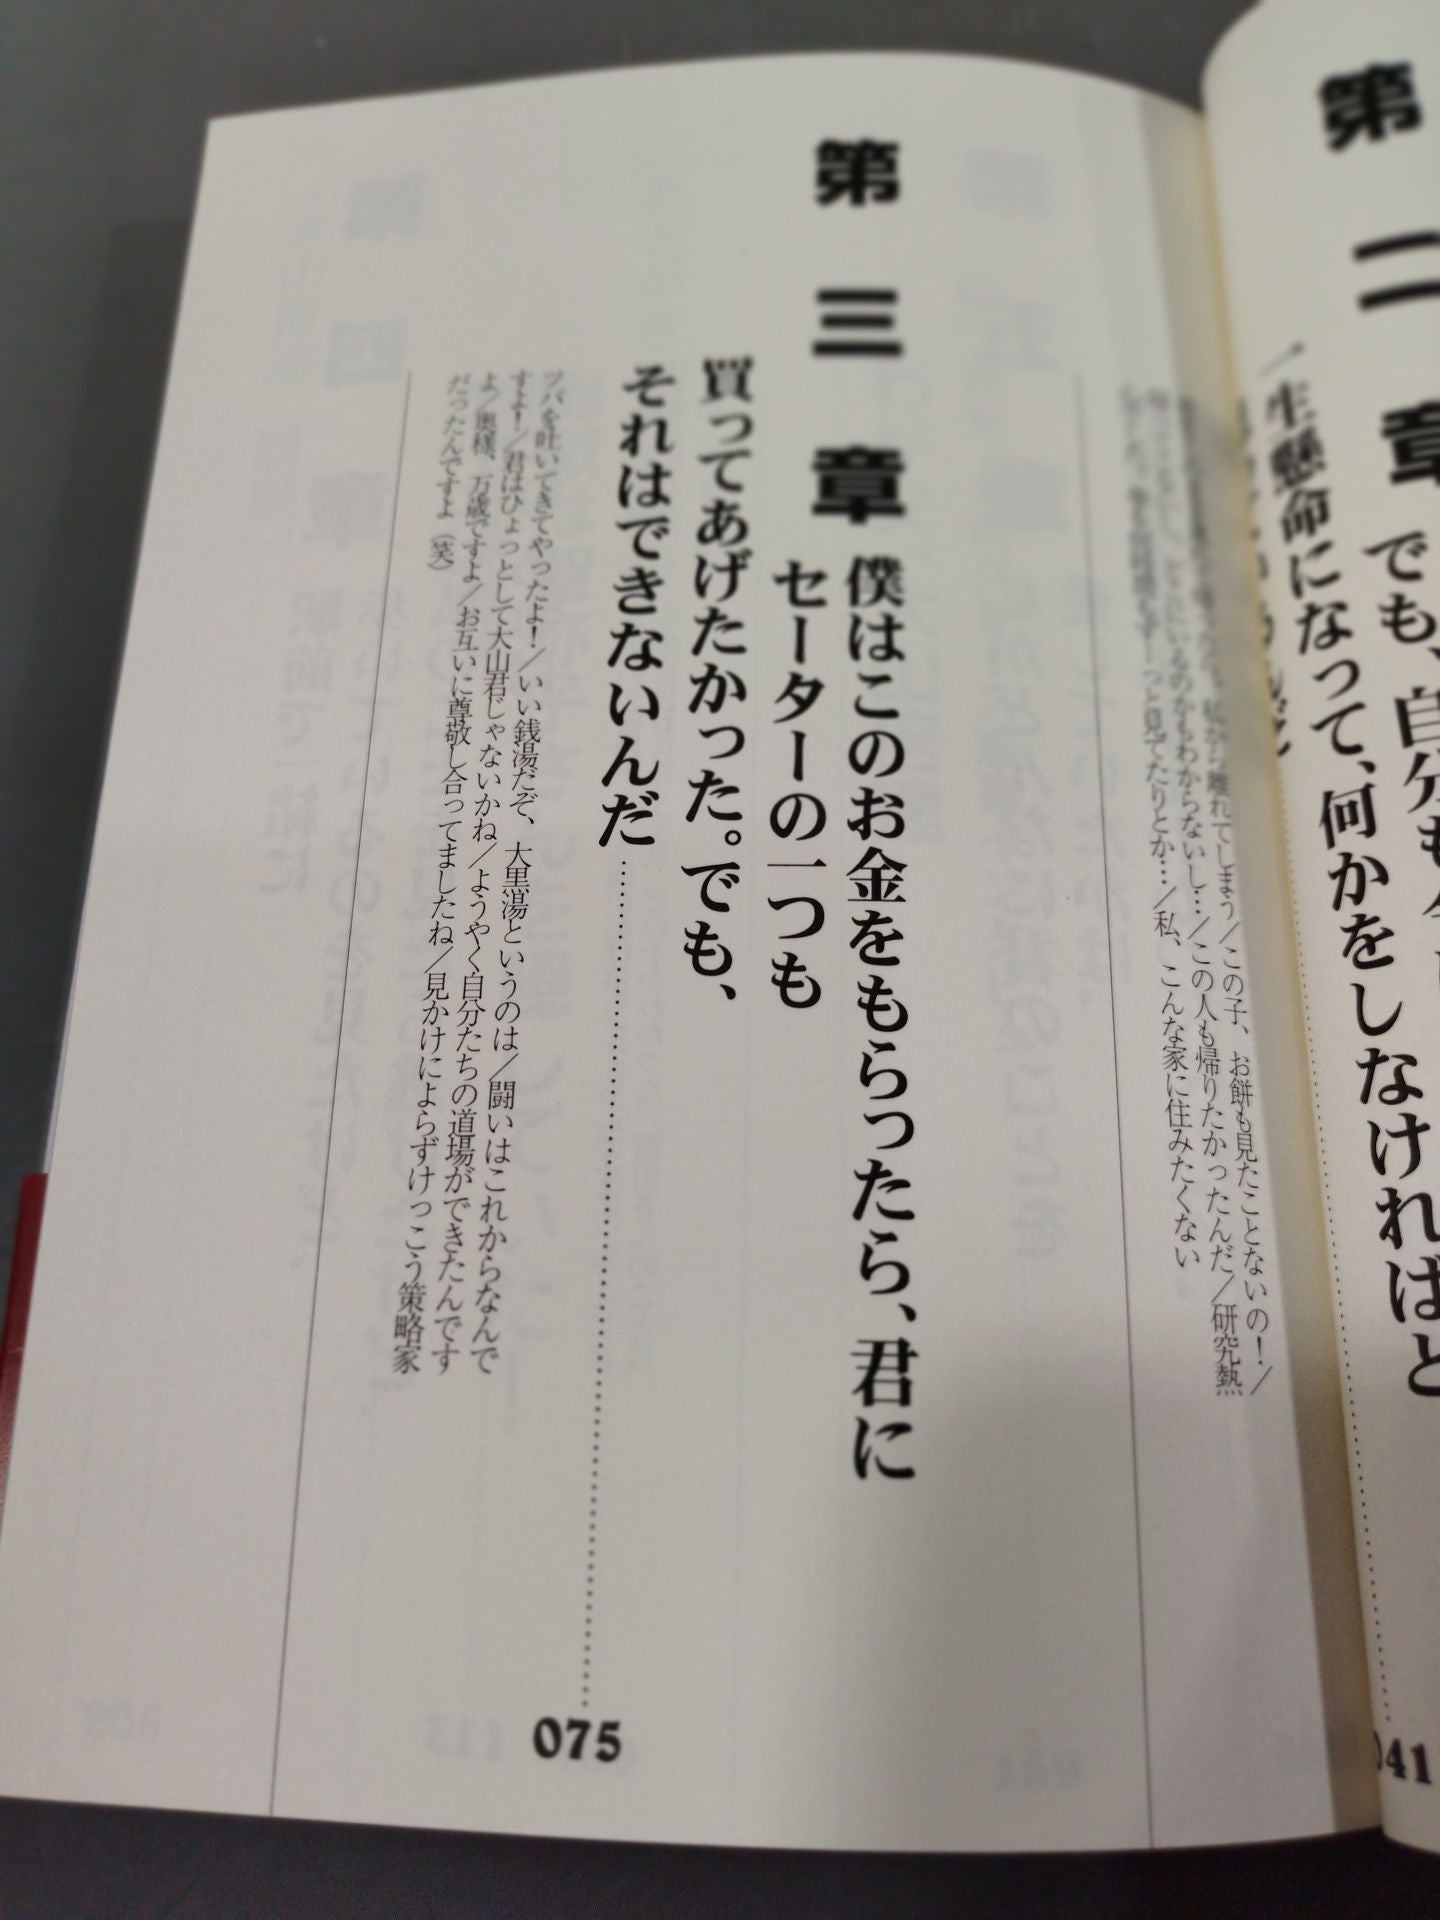 第二章
でも、自分も
一生懸命になって、何かをしなければと
041
私から離れてしまう／この子、お餅も見たことないの！／
どこにいるのかもわからないし…／この人も帰りたかったんだ／研究熱
っと見てたりとか…／私、こんな家に住みたくない
第三章
僕はこのお金をもらったら、君に
セーターの一つも
買ってあげたかった。でも、
それはできないんだ
075
ツバを吐いてきてやったよ！／いい銭湯だぞ、大黒湯というのは／闘いはこれからなんで
すよ！／君はひょっとして大山君じゃないかね／ようやく自分たちの道場ができたんです
よ／奥様、万歳ですよ／お互いに尊敬し合ってましたね／見かけによらずけっこう策略家
だったんですよ（笑）